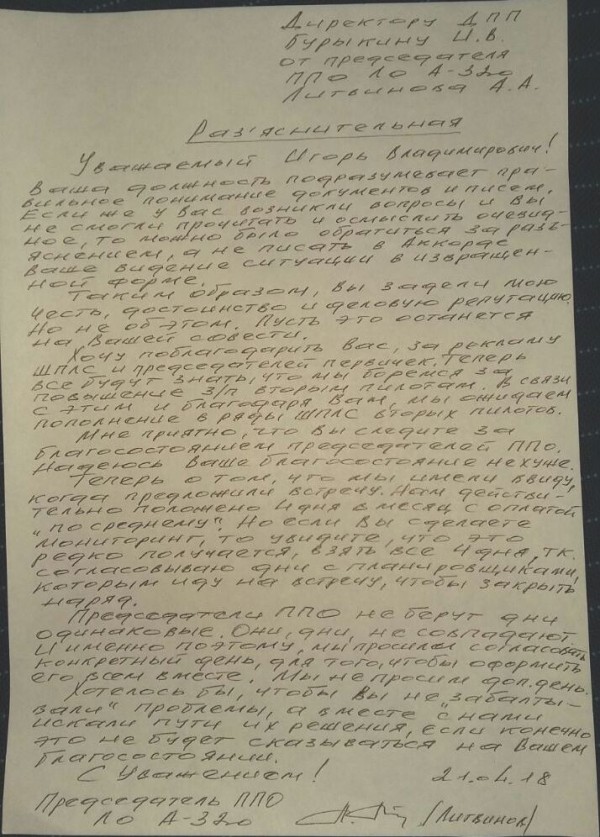 Директору ДПП
Бурыкину И.В.
от председателя
ППО ЛО А-320
Литвинова А.А.
Раз'яснительная
Уважаемый Игорь Владимирович!
Ваша должность подразумевает пра-
вильное понимание документов и писем.
Если же у Вас возникли вопросы и Вы
не смогли прочитать и осмыслить очевид-
ное, то можно было обратиться за разъ-
яснением, а не писать в Аккорде
Ваше видение ситуации в извращен-
ной форме.
Таким образом, Вы задели мою
честь, достоинство и деловую репутацию.
Но не об этом. Пусть это останется
на Вашей совести.
Хочу поблагодарить Вас, за рекламу
ШПЛС и председателей первичек. Теперь
все будут знать, что мы боремся за
повышение З/П вторым пилотам. В связи
с этим и благодаря Вам, мы ожидаем
пополнение в ряды ШПЛС вторых пилотов.
Мне приятно, что Вы следите за
благосостоянием председателей ППО.
Надеюсь Ваше благосостояние не хуже.
Теперь о том, что мы имели ввиду,
когда предложили встречу. Нам действи-
тельно положено 4 дня в месяц с оплатой
"по среднему". Но если Вы сделаете
мониторинг, то увидите, что это
редко получается, взять все 4 дня, т.к.
согласовываю дни с планировщиками,
которым иду на встречу, чтобы закрыть
наряд.
Председатели ППО не берут дни
одинаковые. Они, дни, не совпадают
и именно поэтому, мы просили согласовать
конкретный день, для того, чтобы оформить
его всем вместе. Мы не просим доп. день.
Хотелось бы, чтобы Вы не "забалты-
вали" проблемы, а вместе с нами
искали пути их решения, если конечно
это не будет сказываться на Вашем
благосостоянии.
С Уважением! 21.04.18
Председатель ППО
ЛО А-320 (Литвинов)